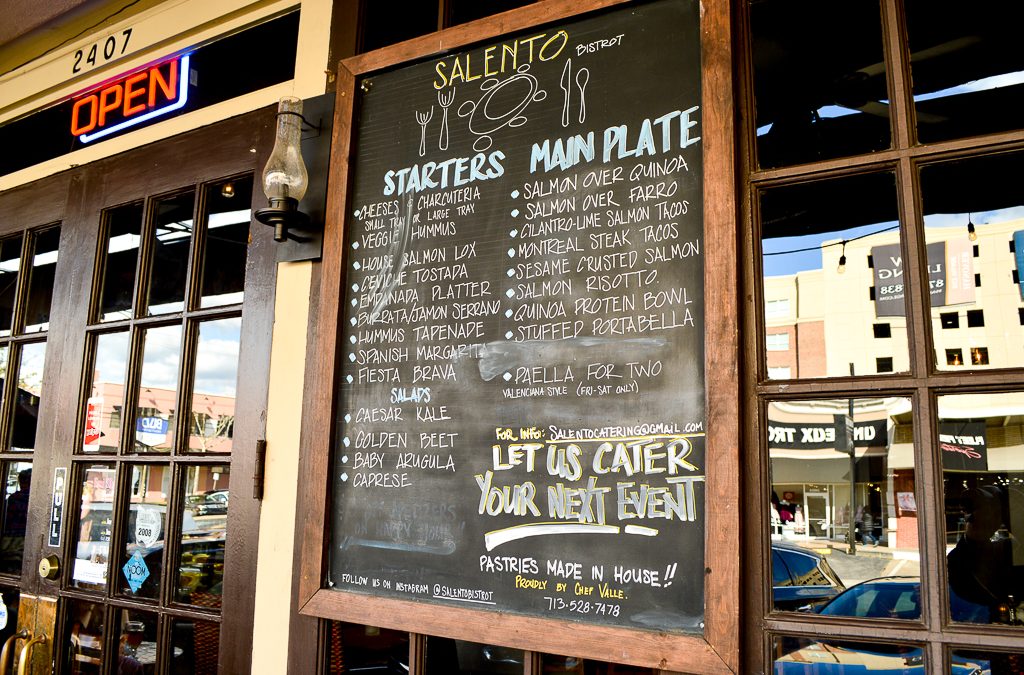 2407
OPEN
SALENTO BISTROT
STARTERS
CHEESES & CHARCUTERIA
SMALL TRAY OR LARGE TRAY
VEGGIE HUMMUS
HOUSE SALMON LOX
CEVICHE TOSTADA
EMPANADA PLATTER
BURRATA/JAMON SERRANO
HUMMUS TAPENADE
SPANISH MARGARITA
FIESTA BRAVA
SALADS
CAESAR KALE
GOLDEN BEET
BABY ARUGULA
CAPRESE
MAIN PLATE
SALMON OVER QUINOA
SALMON OVER FARRO
CILANTRO-LIME SALMON TACOS
MONTREAL STEAK TACOS
SESAME CRUSTED SALMON
SALMON RISOTTO.
QUINOA PROTEIN BOWL
STUFFED PORTABELLA
PAELLA FOR TWO
VALENCIANA STYLE (FRI-SAT ONLY)
FOR INFO: SALENTOCATERING@GMAIL.COM
LET US CATER
YOUR NEXT EVENT
PASTRIES MADE IN HOUSE!!
PROUDLY BY CHEF VALLE.
713-528-7478
FOLLOW US ON INSTAGRAM @SALENTOBISTROT
PULL
2008